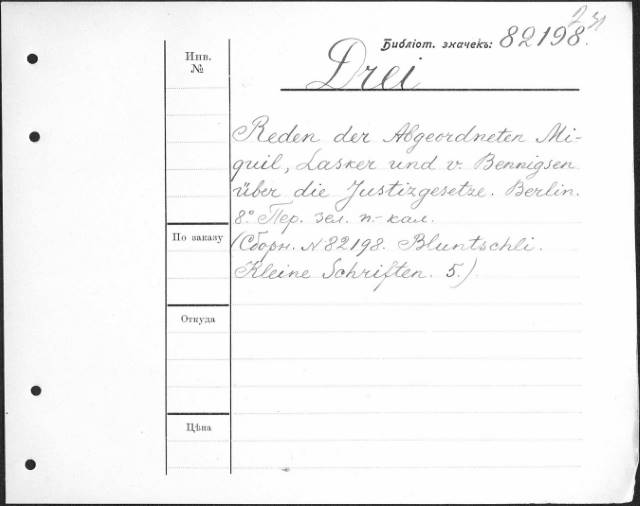 Библіот. значекъ: 82198.
Инв.
№
Drei
Reden der Abgeordneten Mi-
quil, Lasker und v. Bennigsen
über die Justizgesetze. Berlin.
8° Пер. зел. п.-кал.
По заказу
(Сборн. N 82198. Bluntschli.
Kleine Schriften. 5.)
Откуда
Цѣна